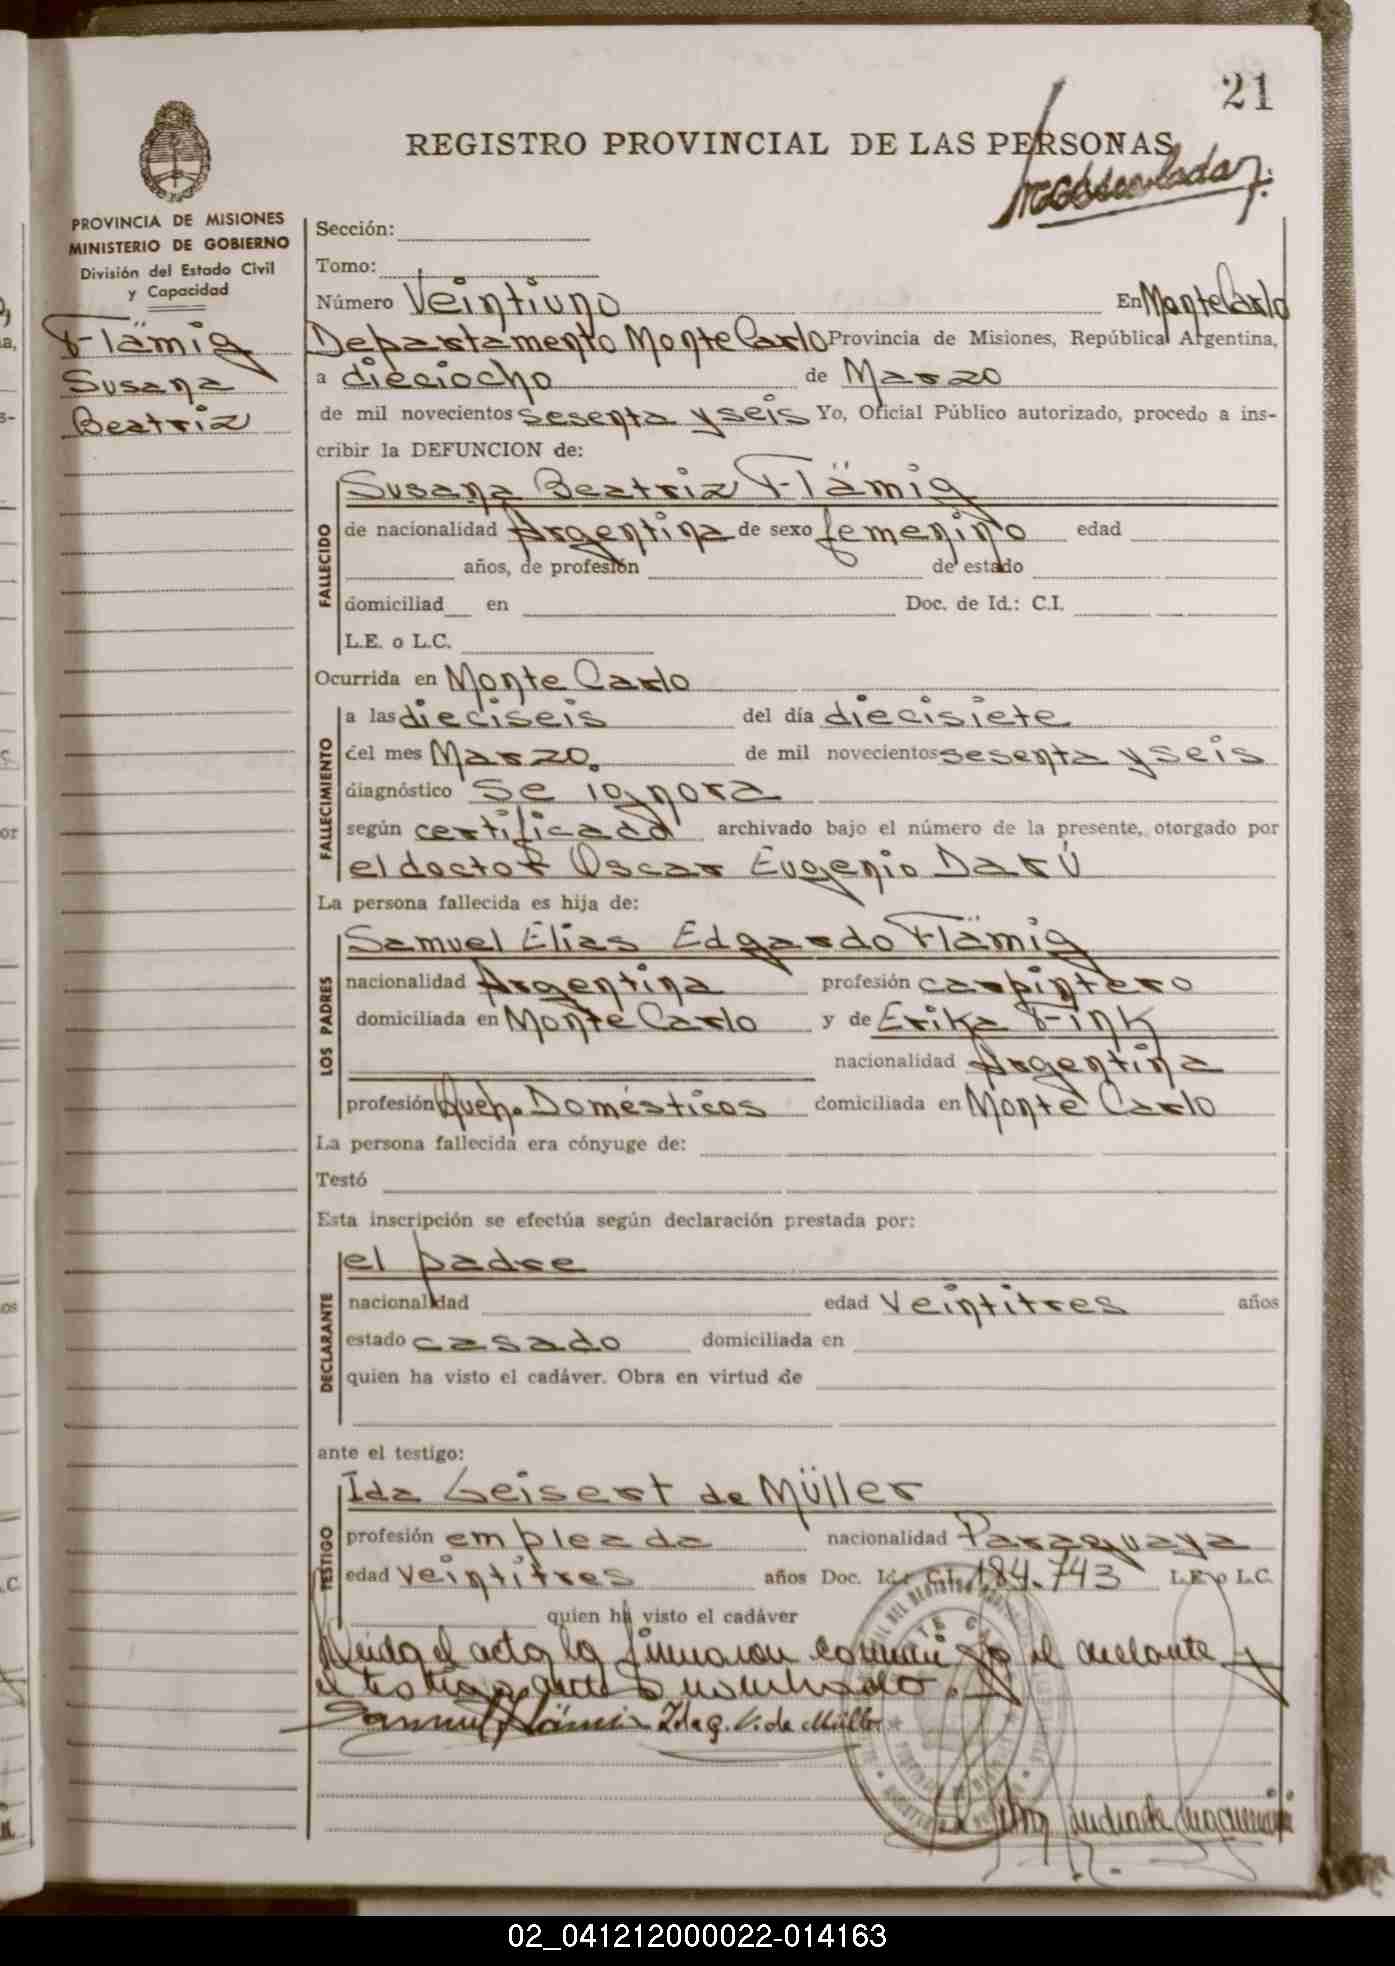 21
REGISTRO PROVINCIAL DE LAS PERSONAS
PROVINCIA DE MISIONES
MINISTERIO DE GOBIERNO
División del Estado Civil
y Capacidad
Flämig
Susana
Beatriz
Sección:
Tomo:
Número Veintiuno En Monte Carlo
Departamento Monte Carlo Provincia de Misiones, República Argentina,
a dieciocho de Marzo
de mil novecientos sesenta y seis Yo, Oficial Público autorizado, procedo a ins-
cribir la DEFUNCION de:
FALLECIDO
Susana Beatriz Flämig
de nacionalidad Argentina de sexo femenino edad
años, de profesión de estado
domiciliad en Doc. de Id.: C.I.
L.E. o L.C.
Ocurrida en Monte Carlo
FALLECIMIENTO
a las dieciseis del día diecisiete
del mes Marzo. de mil novecientos sesenta y seis
diagnóstico Se ignora
según certificado archivado bajo el número de la presente, otorgado por
el doctor Oscar Eugenio Darú
La persona fallecida es hija de:
LOS PADRES
Samuel Elias Edgardo Flämig
nacionalidad Argentina profesión carpintero
domiciliada en Monte Carlo y de Erika Fink
nacionalidad Argentina
profesión Queh. Domésticos domiciliada en Monte Carlo
La persona fallecida era cónyuge de:
Testó
Esta inscripción se efectúa según declaración prestada por:
DECLARANTE
el padre
nacionalidad edad Veintitres años
estado casado domiciliada en
quien ha visto el cadáver. Obra en virtud de
ante el testigo:
TESTIGO
Ida Geisert de Müller
profesión empleada nacionalidad Paraguaya
edad Veintitres años Doc. Id.: C.I. 184.743 L.E. o L.C.
quien ha visto el cadáver
Leida el acta la firmaron conmigo el declarante y
el testigo antes nombrado.
Samuel Flämig Ida G. V. de Müller
02_041212000022-014163